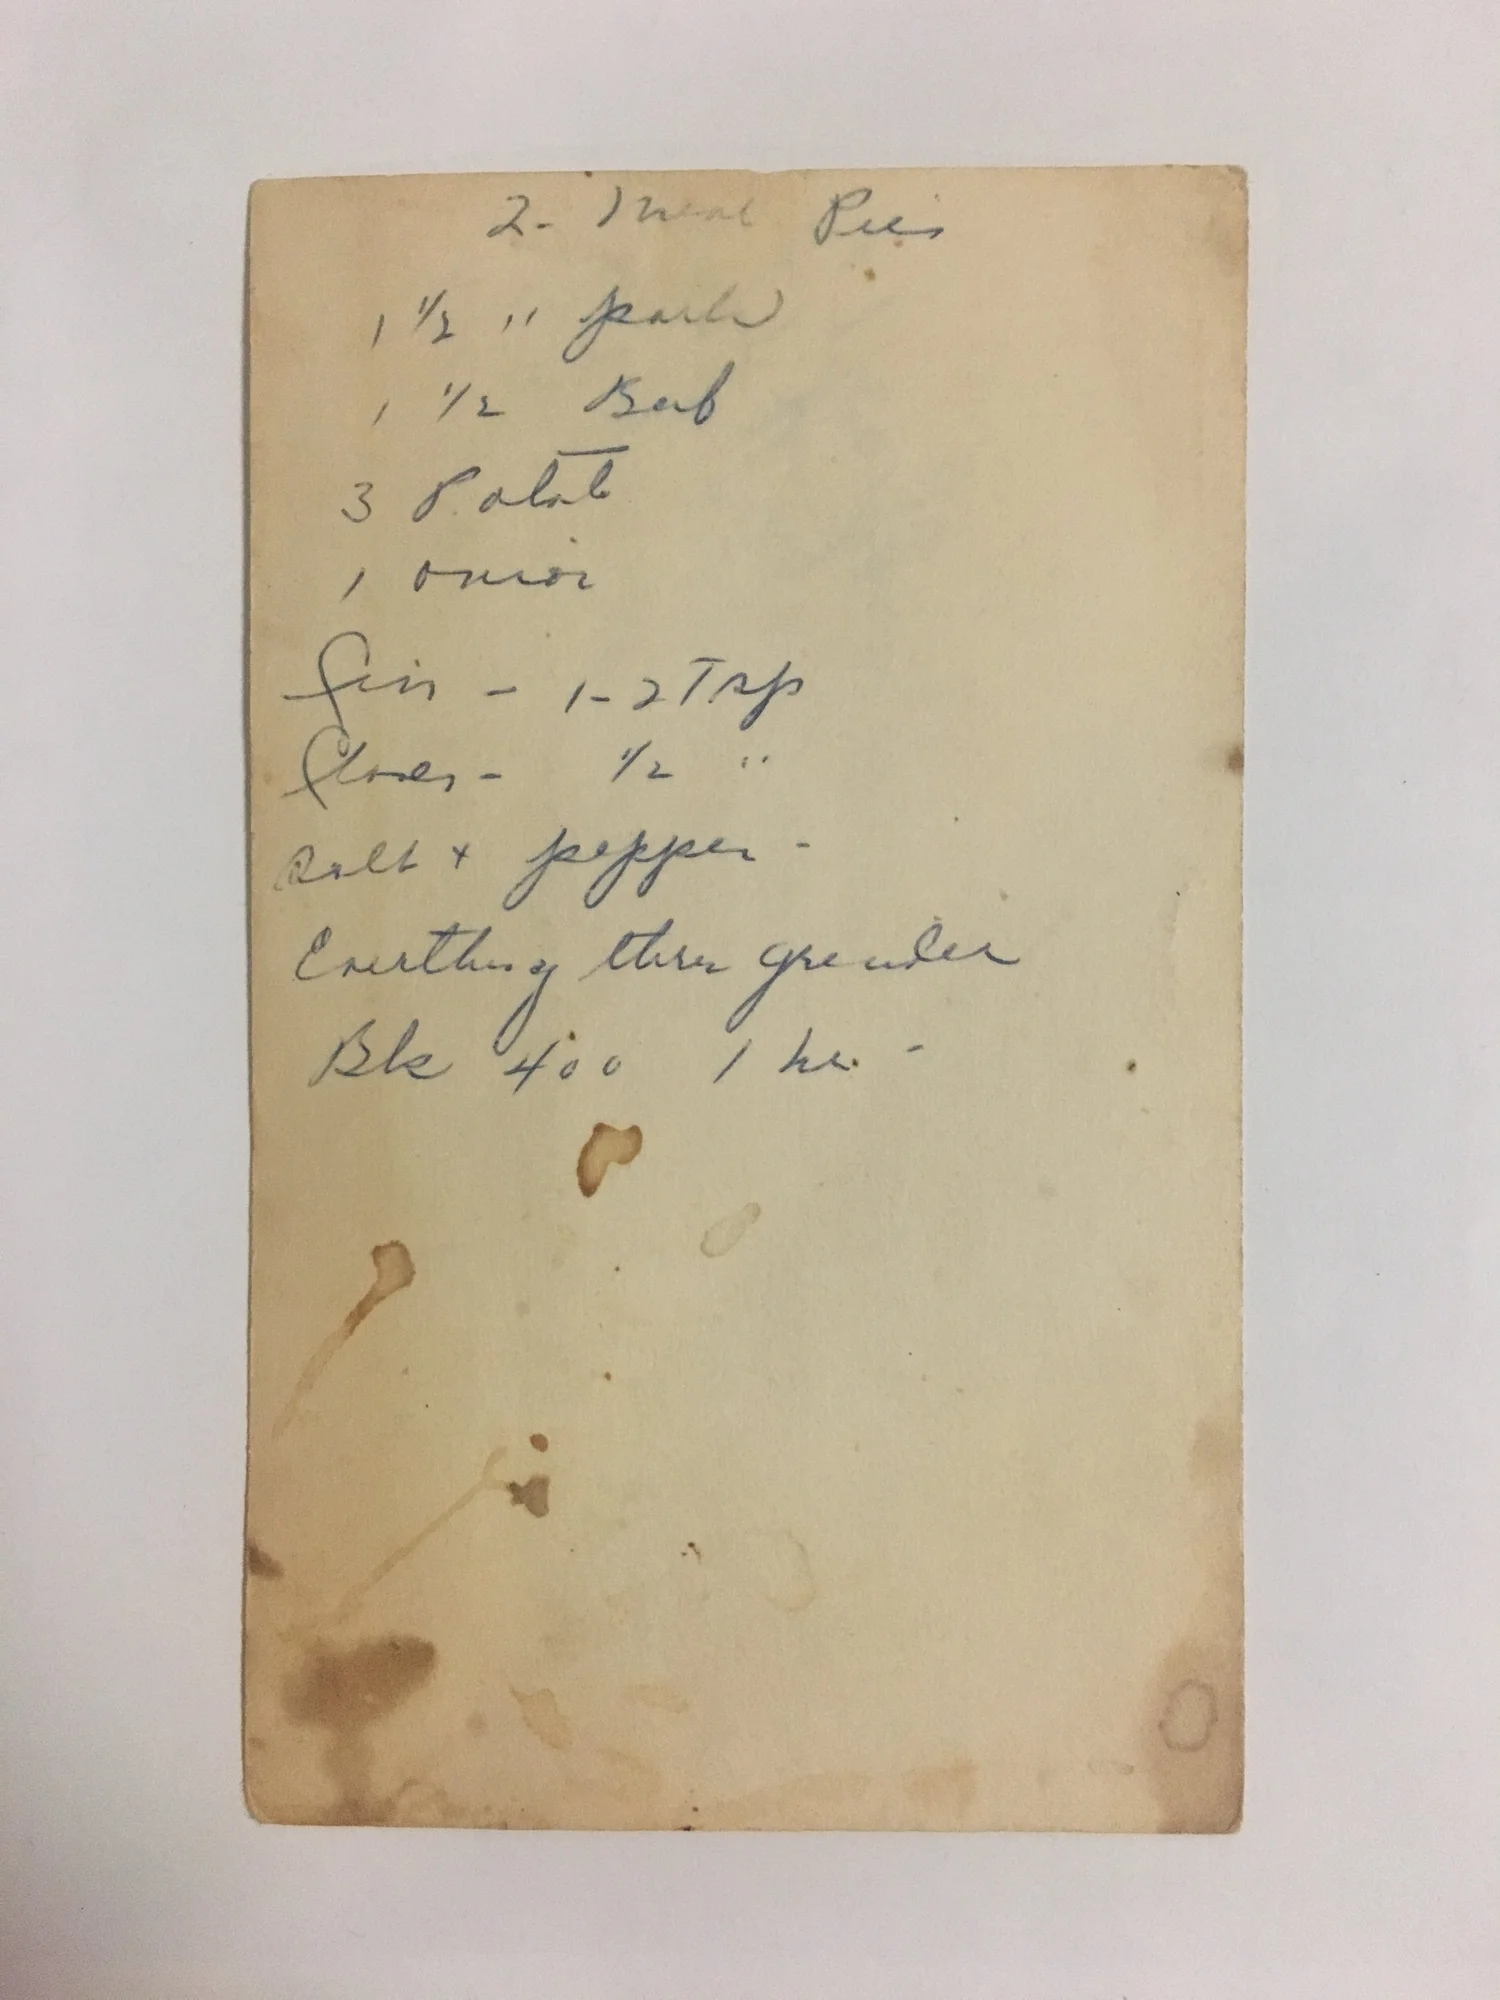 2- Meat Pies
1 1/2 " pork
1 1/2 Beef
3 Potato
1 onion
- 1-2 Tsp
Cloves - 1/2 "
Salt + pepper -
Everthing thru grinder
Bk 400 1 hr. -